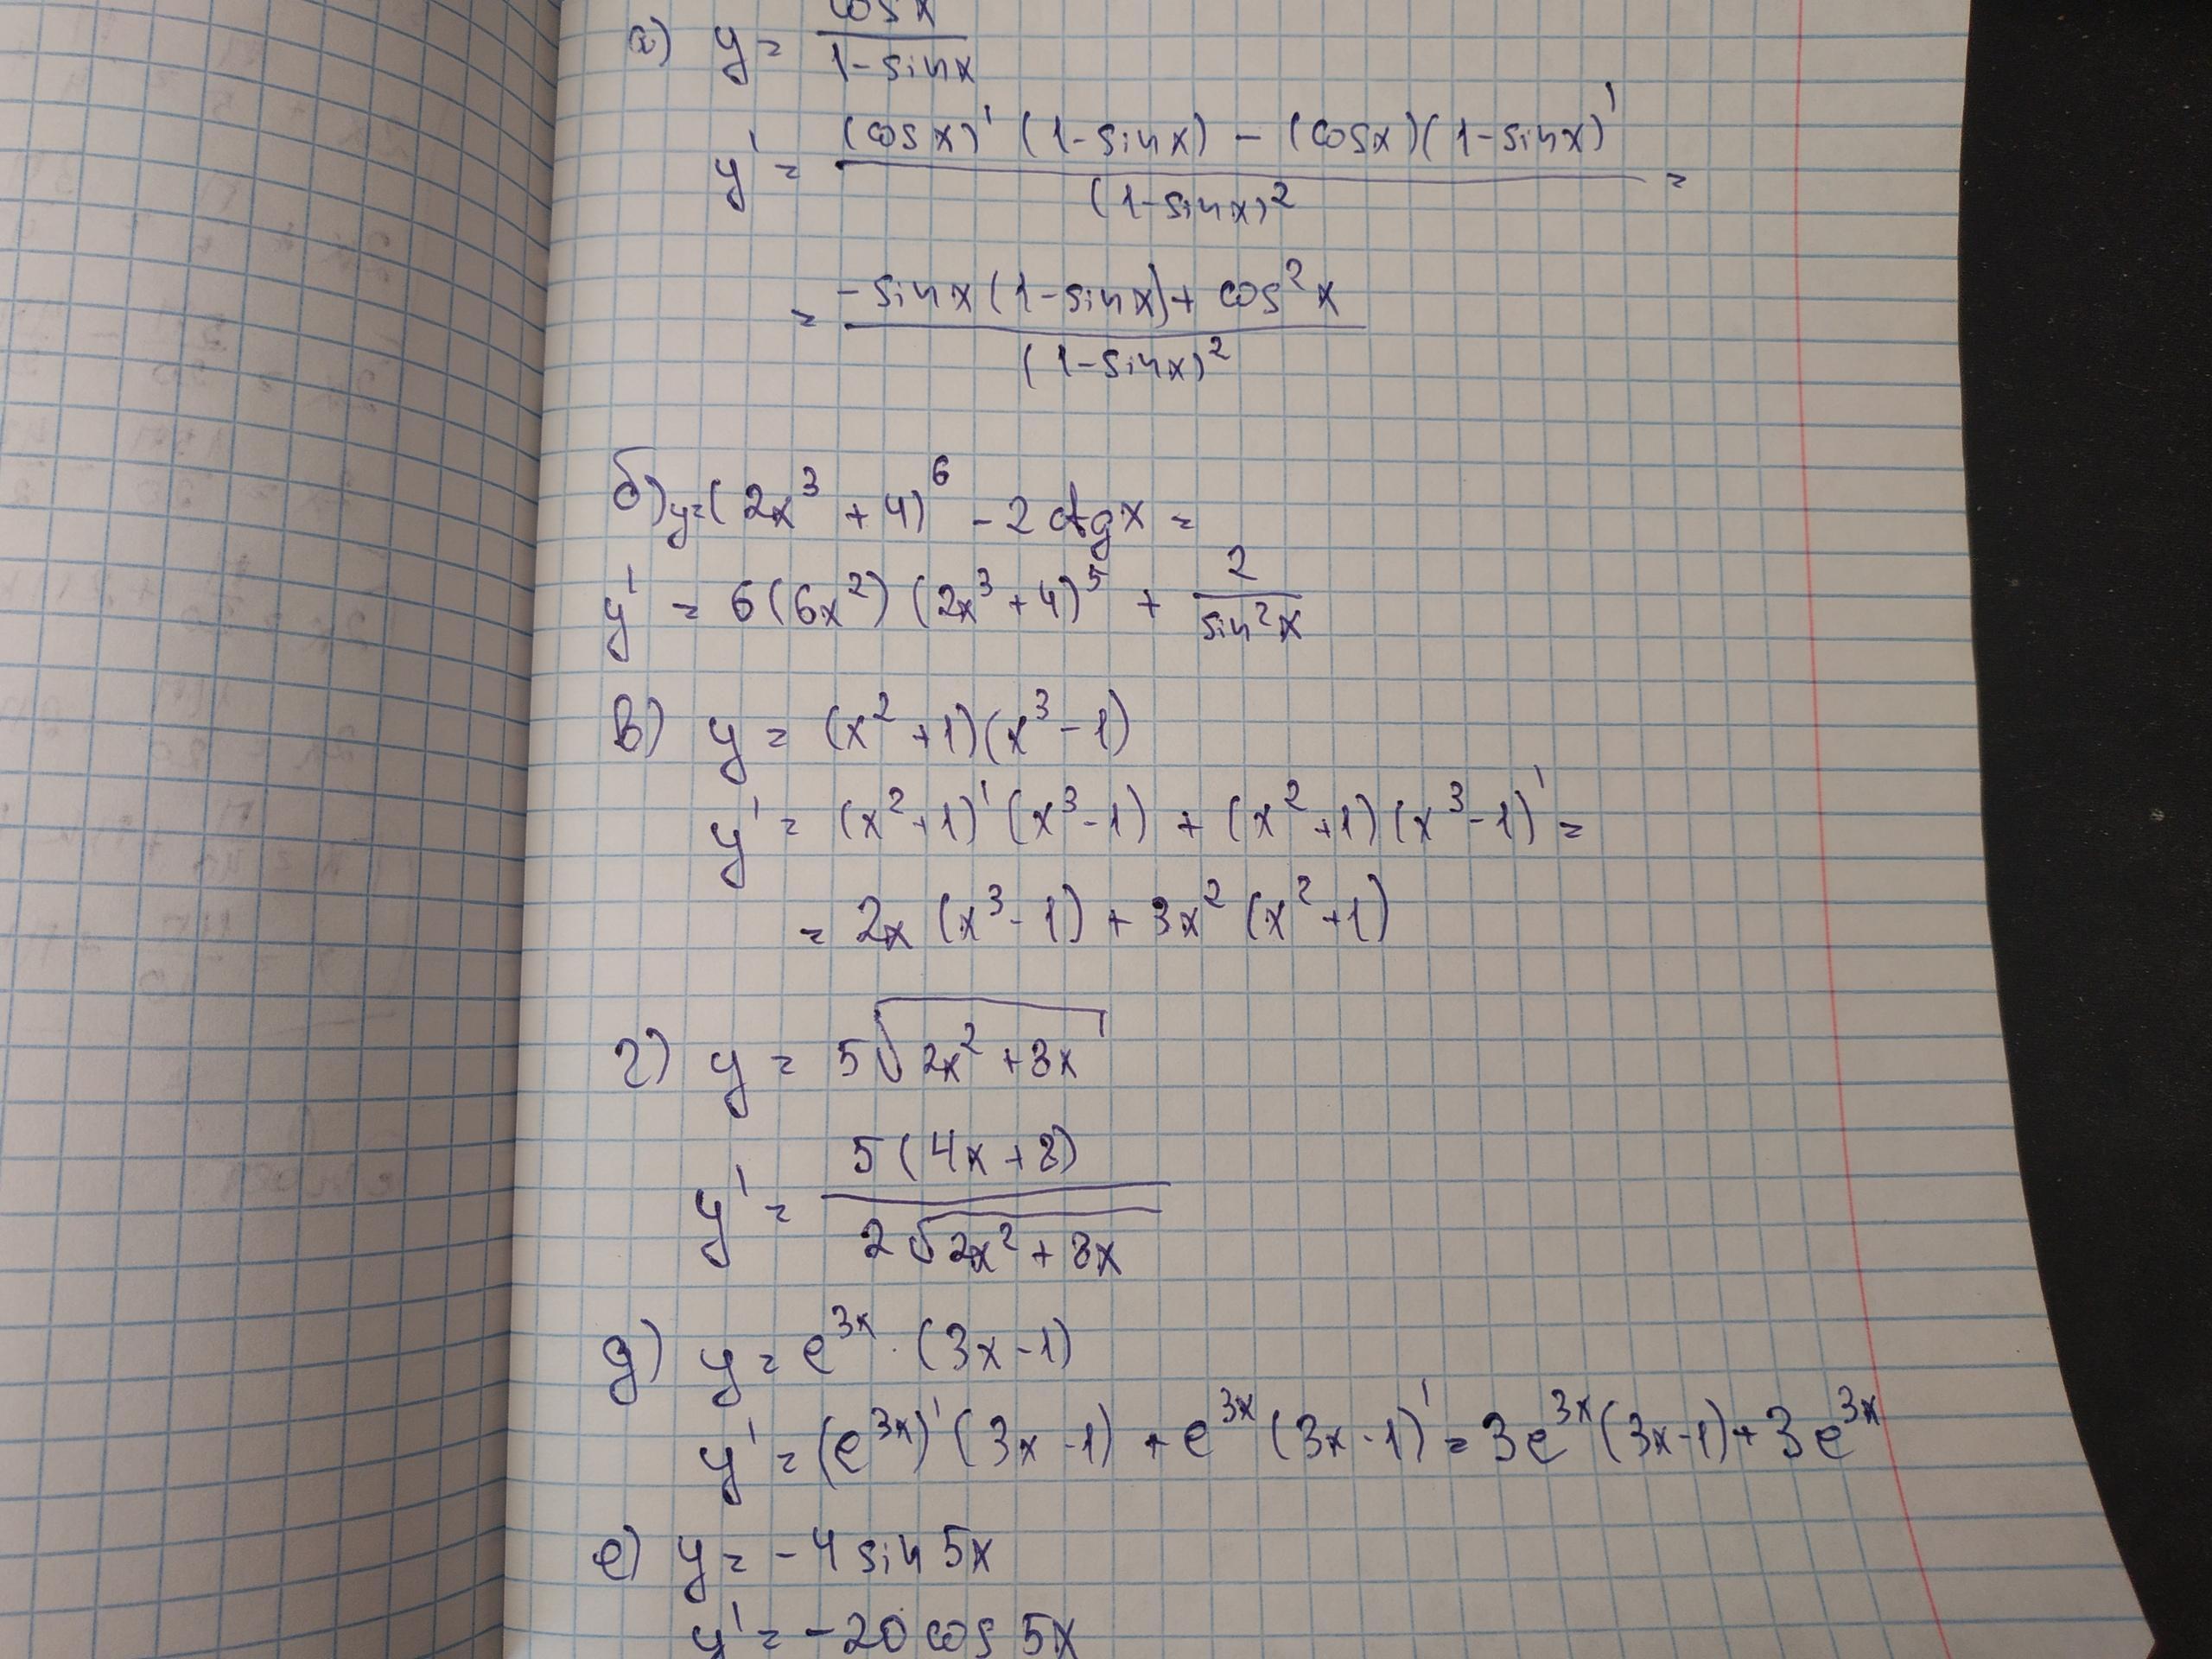 а) y = cosx / 1-sinx
y' = (cosx)' (1-sinx) - (cosx)(1-sinx)' / (1-sinx)² =
= -sinx(1-sinx)+cos²x / (1-sinx)²
б) y=(2x³+4)⁶ - 2ctgx =
y' = 6(6x²)(2x³+4)⁵ + 2 / sin²x
в) y = (x²+1)(x³-1)
y' = (x²+1)'(x³-1) + (x²+1)(x³-1)' =
= 2x(x³-1) + 3x²(x²+1)
г) y = 5√(2x²+3x)
y' = 5(4x+3) / 2√(2x²+3x)
д) y = e³ˣ · (3x-1)
y' = (e³ˣ)'(3x-1) + e³ˣ(3x-1)' = 3e³ˣ(3x-1)+3e³ˣ
е) y = -4sin5x
y' = -20cos5x